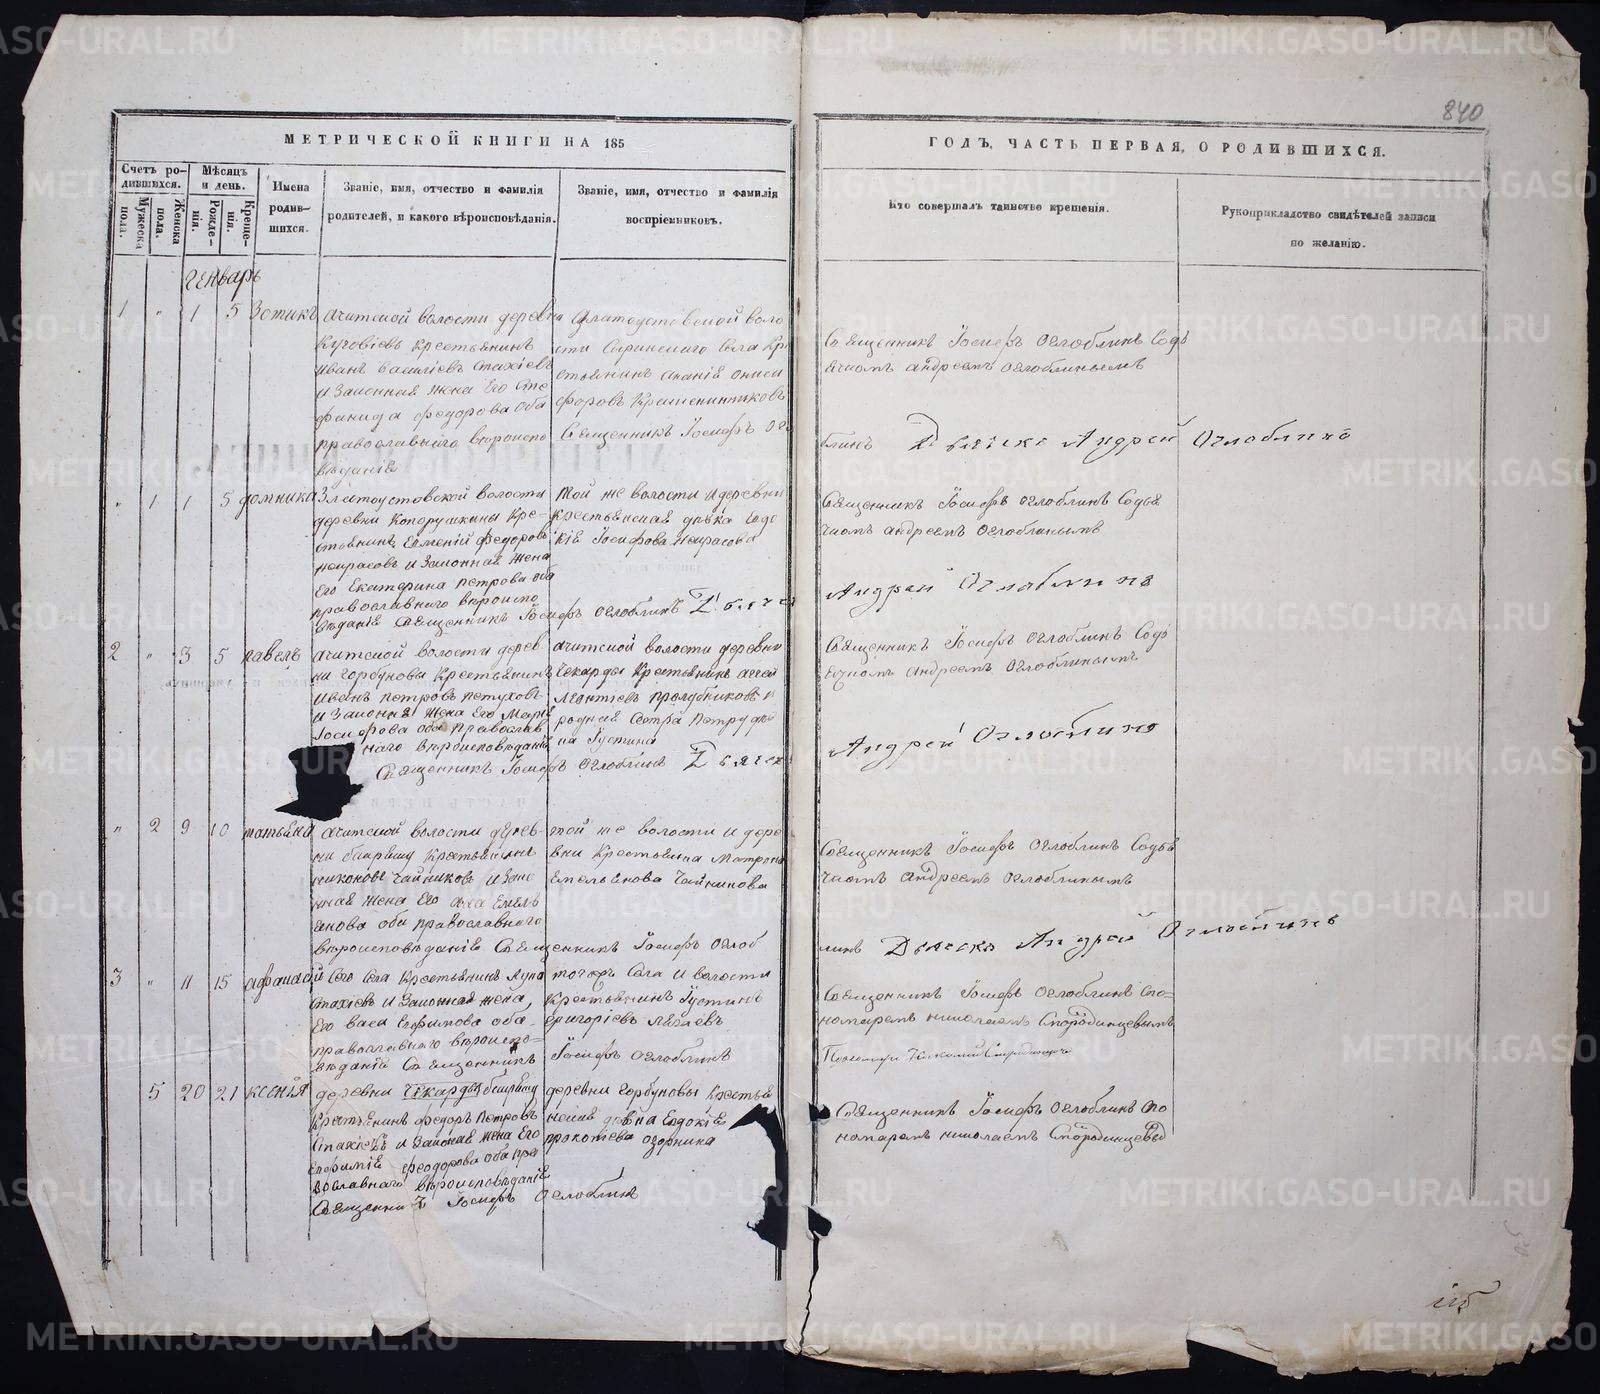 840
МЕТРИЧЕСКОЙ КНИГИ НА 185
ГОДЪ, ЧАСТЬ ПЕРВАЯ, О РОДИВШИХСЯ.
Счетъ ро-
дившихся.
Мужеска пола.
Женска пола.
Мѣсяцъ
и день.
Рожде-
нія.
Креще-
нія.
Имена
родив-
шихся.
Званіе, имя, отчество и фамилія
родителей, и какого вѣроисповѣданія.
Званіе, имя, отчество и фамилія
воспріемниковъ.
Кто совершалъ таинство крещенія.
Рукоприкладство свидѣтелей записи
по желанію.
Генварь
1 " 1 5 Зотикъ
ачитской волости деревни
крестьянинъ
иванъ василіевъ стахіевъ
и законная жена его сте
фанида федорова оба
православнаго вѣроиспо
вѣданія
Златоустовской воло
сти Сыринскаго села кре
стьянинъ ананій ониси
форовъ Крашенинниковъ
Священникъ Іосифъ Огло
Священникъ Іосифъ Оглоблинъ Содъ
ячкомъ андреемъ оглоблинымъ
блинъ Дьячекъ Андрей Оглоблинъ
" 1 1 5 домника
Златоустовской волости
деревни Копорушкины кре-
стьянинъ Евгеній федоровъ
некрасовъ и законная жена
его Екатерина петрова оба
православнаго вѣроиспо
вѣданія Священникъ Іосифъ Оглоблинъ Дьячек
той же волости и деревни
крестьянская дѣвка Евдо
кія Іосифова некрасова
Священникъ Іосифъ Оглоблинъ Содья
чкомъ андреемъ оглоблинымъ
Андрей Оглоблинъ
2 " 3 5 павелъ
ачитской волости дерев
ни Горбуновы Крестьянинъ
иванъ петровъ петуховъ
и законная жена его Марія
Іосифова оба православ
наго вѣроисповѣданія
Священникъ Іосифъ Оглоблинъ Дьячек
ачитской волости деревни
Чекарды Крестьянинъ
леонтіевъ пролубниковъ и
родная сестра
Іустина
Священникъ Іосифъ Оглоблинъ Содь
ячкомъ андреемъ Оглоблинымъ
Андрей Оглоблинъ
" 2 9 10 татьяна
ачитской волости дерев-
ни крестьянинъ
никоновъ Чайниковъ и закон
ная жена его Емель
янова оба православнаго
вѣроисповѣданія Священникъ Іосифъ Оглоб
той же волости и дере
вни Крестьянка Матрона
Емельянова Чайникова
Священникъ Іосифъ Оглоблинъ Содья
чкомъ андреемъ оглоблинымъ
линъ Дьячекъ Андрей Оглоблинъ
3 " 11 15 афанасій
Сего села Крестьянинъ лука
стахіевъ и законная жена
его васа Ефимова оба
православнаго вѣроиспо-
вѣданія Священникъ
тогожъ села и волости
крестьянинъ Іустинъ
григоріевъ
Іосифъ Оглоблинъ
Священникъ Іосифъ Оглоблинъ Спо-
номаремъ николаемъ Смородинцевымъ
Пономарь Николай Смородинцевъ
5 20 21 ксенія
деревни Чекарды
Крестьянинъ федоръ петровъ
стахіевъ и законная жена его
Евфимія феодорова оба пра
вославнаго вѣроисповѣданія
Священникъ Іосифъ Оглоблинъ
деревни Горбуновы крестья
нская дѣвка Евдокія
прокопіева
Священникъ Іосифъ Оглоблинъ спо
номаремъ николаемъ Смородинцевы
METRIKI.GASO-URAL.RU